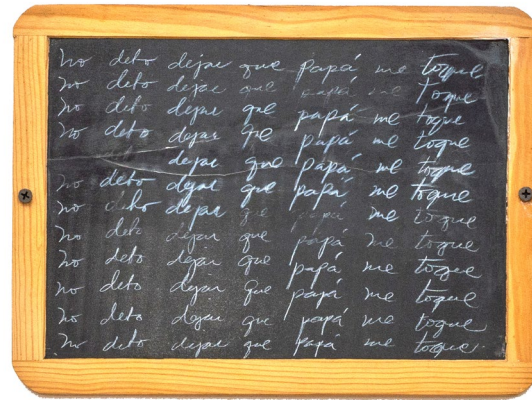 no debo dejar que papá me toque
no debo dejar que papá me toque
no debo dejar que papá me toque
no debo dejar que papá me toque
dejar que papá me toque
no debo dejar que papá me toque
no debo dejar que papá me toque
no debo dejar que papá me toque
no debo dejar que papá me toque
no debo dejar que papá me toque
no debo dejar que papá me toque
no debo dejar que papá me toque.